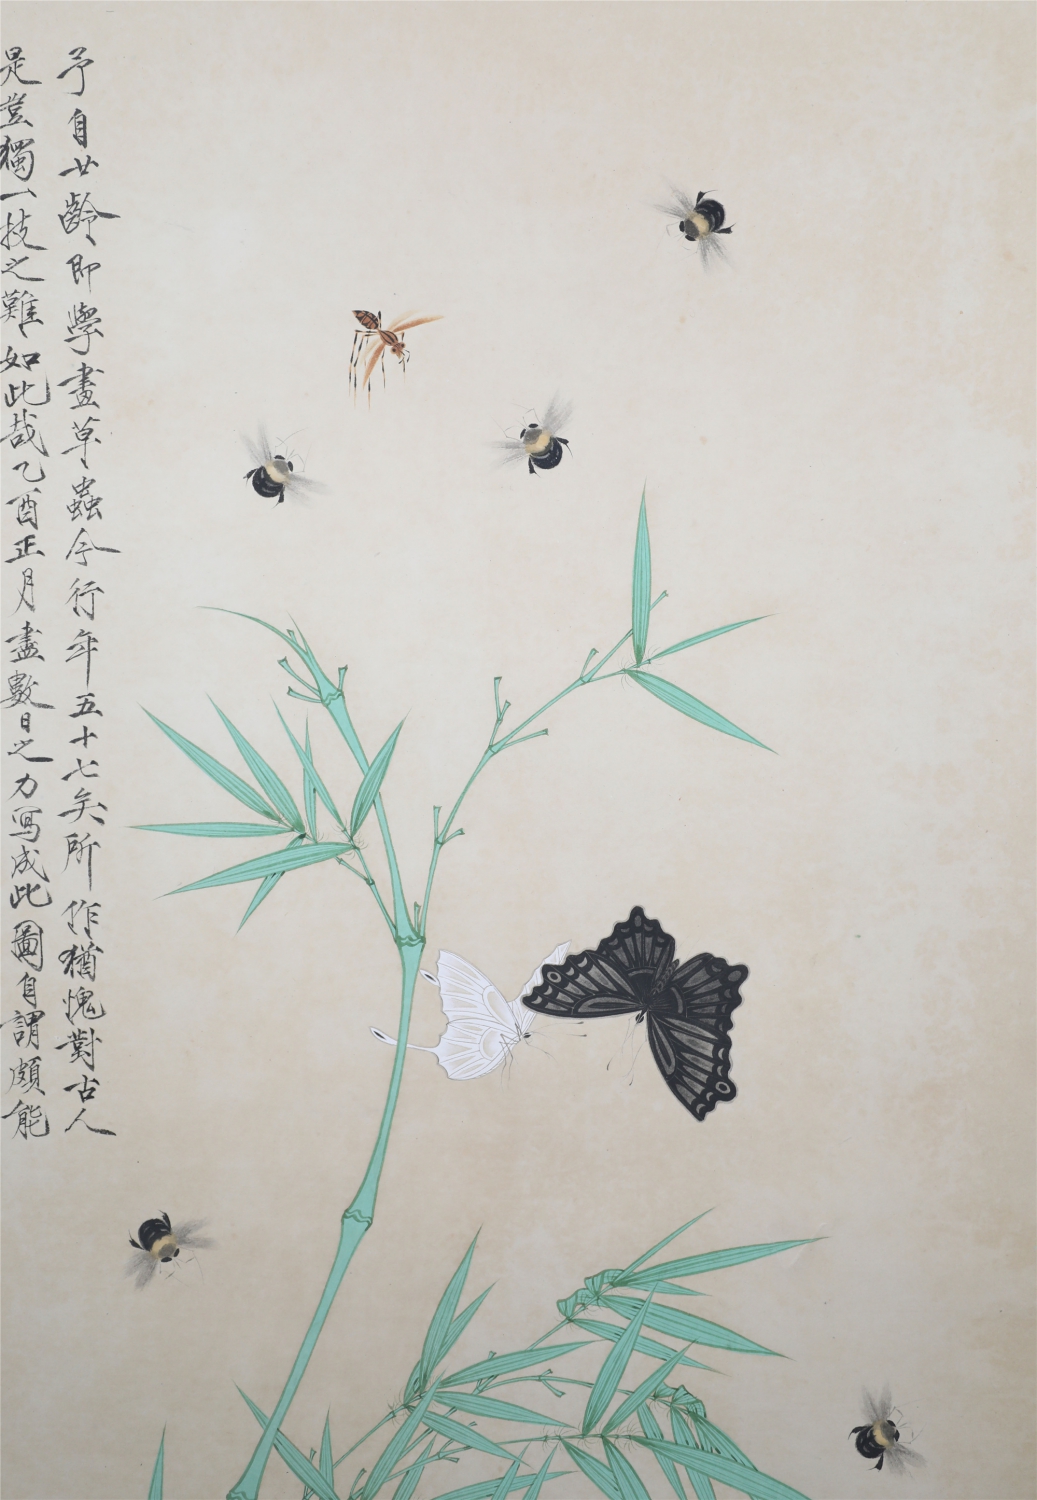 予自廿齡即學畫草蟲今行年五十七矣所作猶愧對古人
是豈獨一技之難如此哉乙酉正月盡數日之力寫成此圖自謂頗能